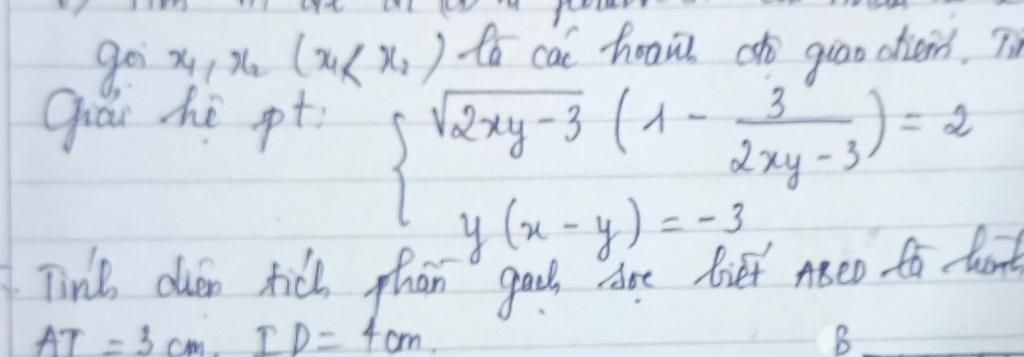 gọi x₁, x₂ (x₁ < x₂) là các hoành độ giao điểm.
Giải hệ pt: { √(2xy - 3) (1 - 3/(2xy - 3)) = 2
y(x - y) = -3
Tính diện tích phần gạch sọc biết ABED là hình
AI = 3 cm, ID = 4 cm.
B